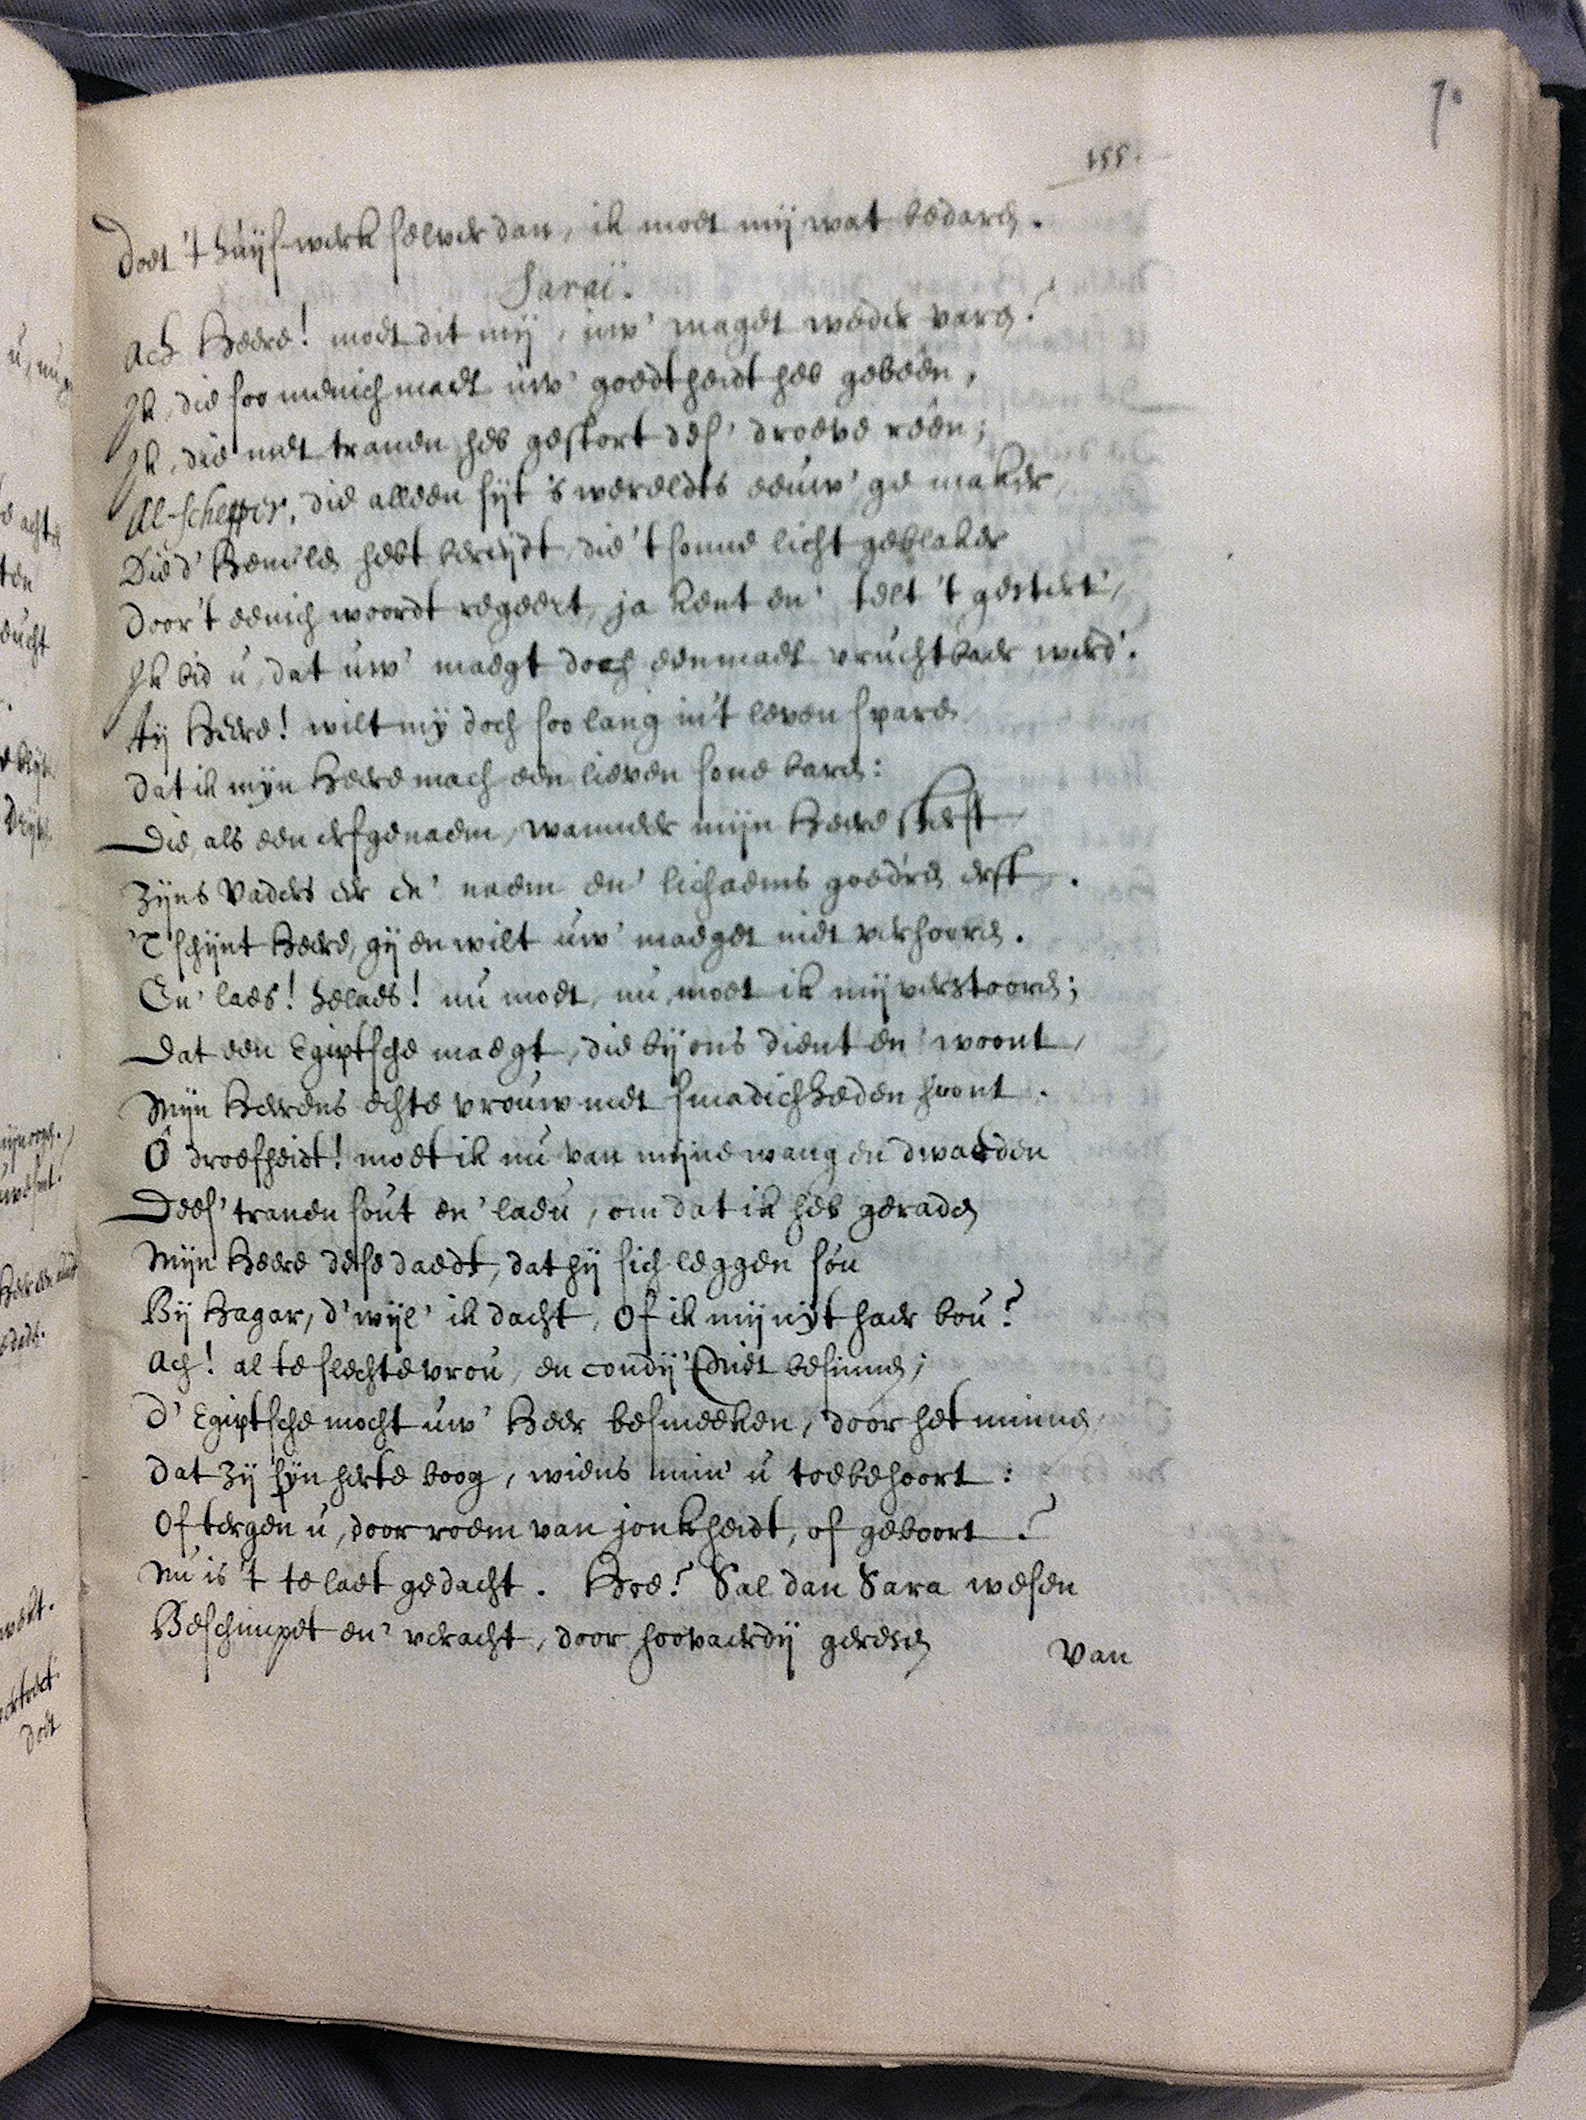 7.
155.
Doet 't huijs-werk selver dan, ik moet mij wat bedaren.
Saraï.
Ach Heere! moet dit mij, uw' maget weder varen?
Ik, die soo menichmael uw' goedtheidt heb gebeên,
Ik, die met tranen heb gestort des' droeve reên;
Al-schepper, die alleen sijt 's wereldts eeuw'ge maker,
Die d' Hemelen hebt bereijdt, die 't sonne licht geblaker
Door 't eenich woordt regeert, ja kent en' telt 't gestert',
Ik bid u, dat uw' maegt doch eenmael vruchtbaer werd'.
Aij Heere! wilt mij doch soo lang in't leven sparen
Dat ik mijn Heere mach een lieven sone baren:
Die, als een erfgenaem, wanneer mijn Heere sterft
Zijns Vaders eer en' naem en' lichaems goed'ren erft.
'T schijnt Heere, gij en wilt uw' maeget niet verhooren.
En' laes! helaes! nu moet, nu moet ik mij verstooren;
Dat een Egiptsche maegt, die bij ons dient en' woont,
Mijn Heerens echte vrouw met smadichheden hoont.
Ô droefheidt! moet ik nu van mijne wangen dwaeden
Dees' tranen sout en' laeu, om dat ik heb geraden
Mijn Heere dese daedt, dat hij sich leggen sou
Bij Hagar, d'wijl' ik dacht, Of ik mij uijt haer bou?
Ach! al te slechte vrou, en condij 't niet besinnen;
D' Egiptsche mocht uw' Heer besmeeken, door het minnen,
Dat zij sijn herte boog, wiens min' u toebehoort:
Of tergen u, door roem van jonkheidt, of geboort?
Nu is 't te laet gedacht. Hoe? Sal dan Sara wesen
Beschimpet en' veracht, door hoovaerdij geresen
Van